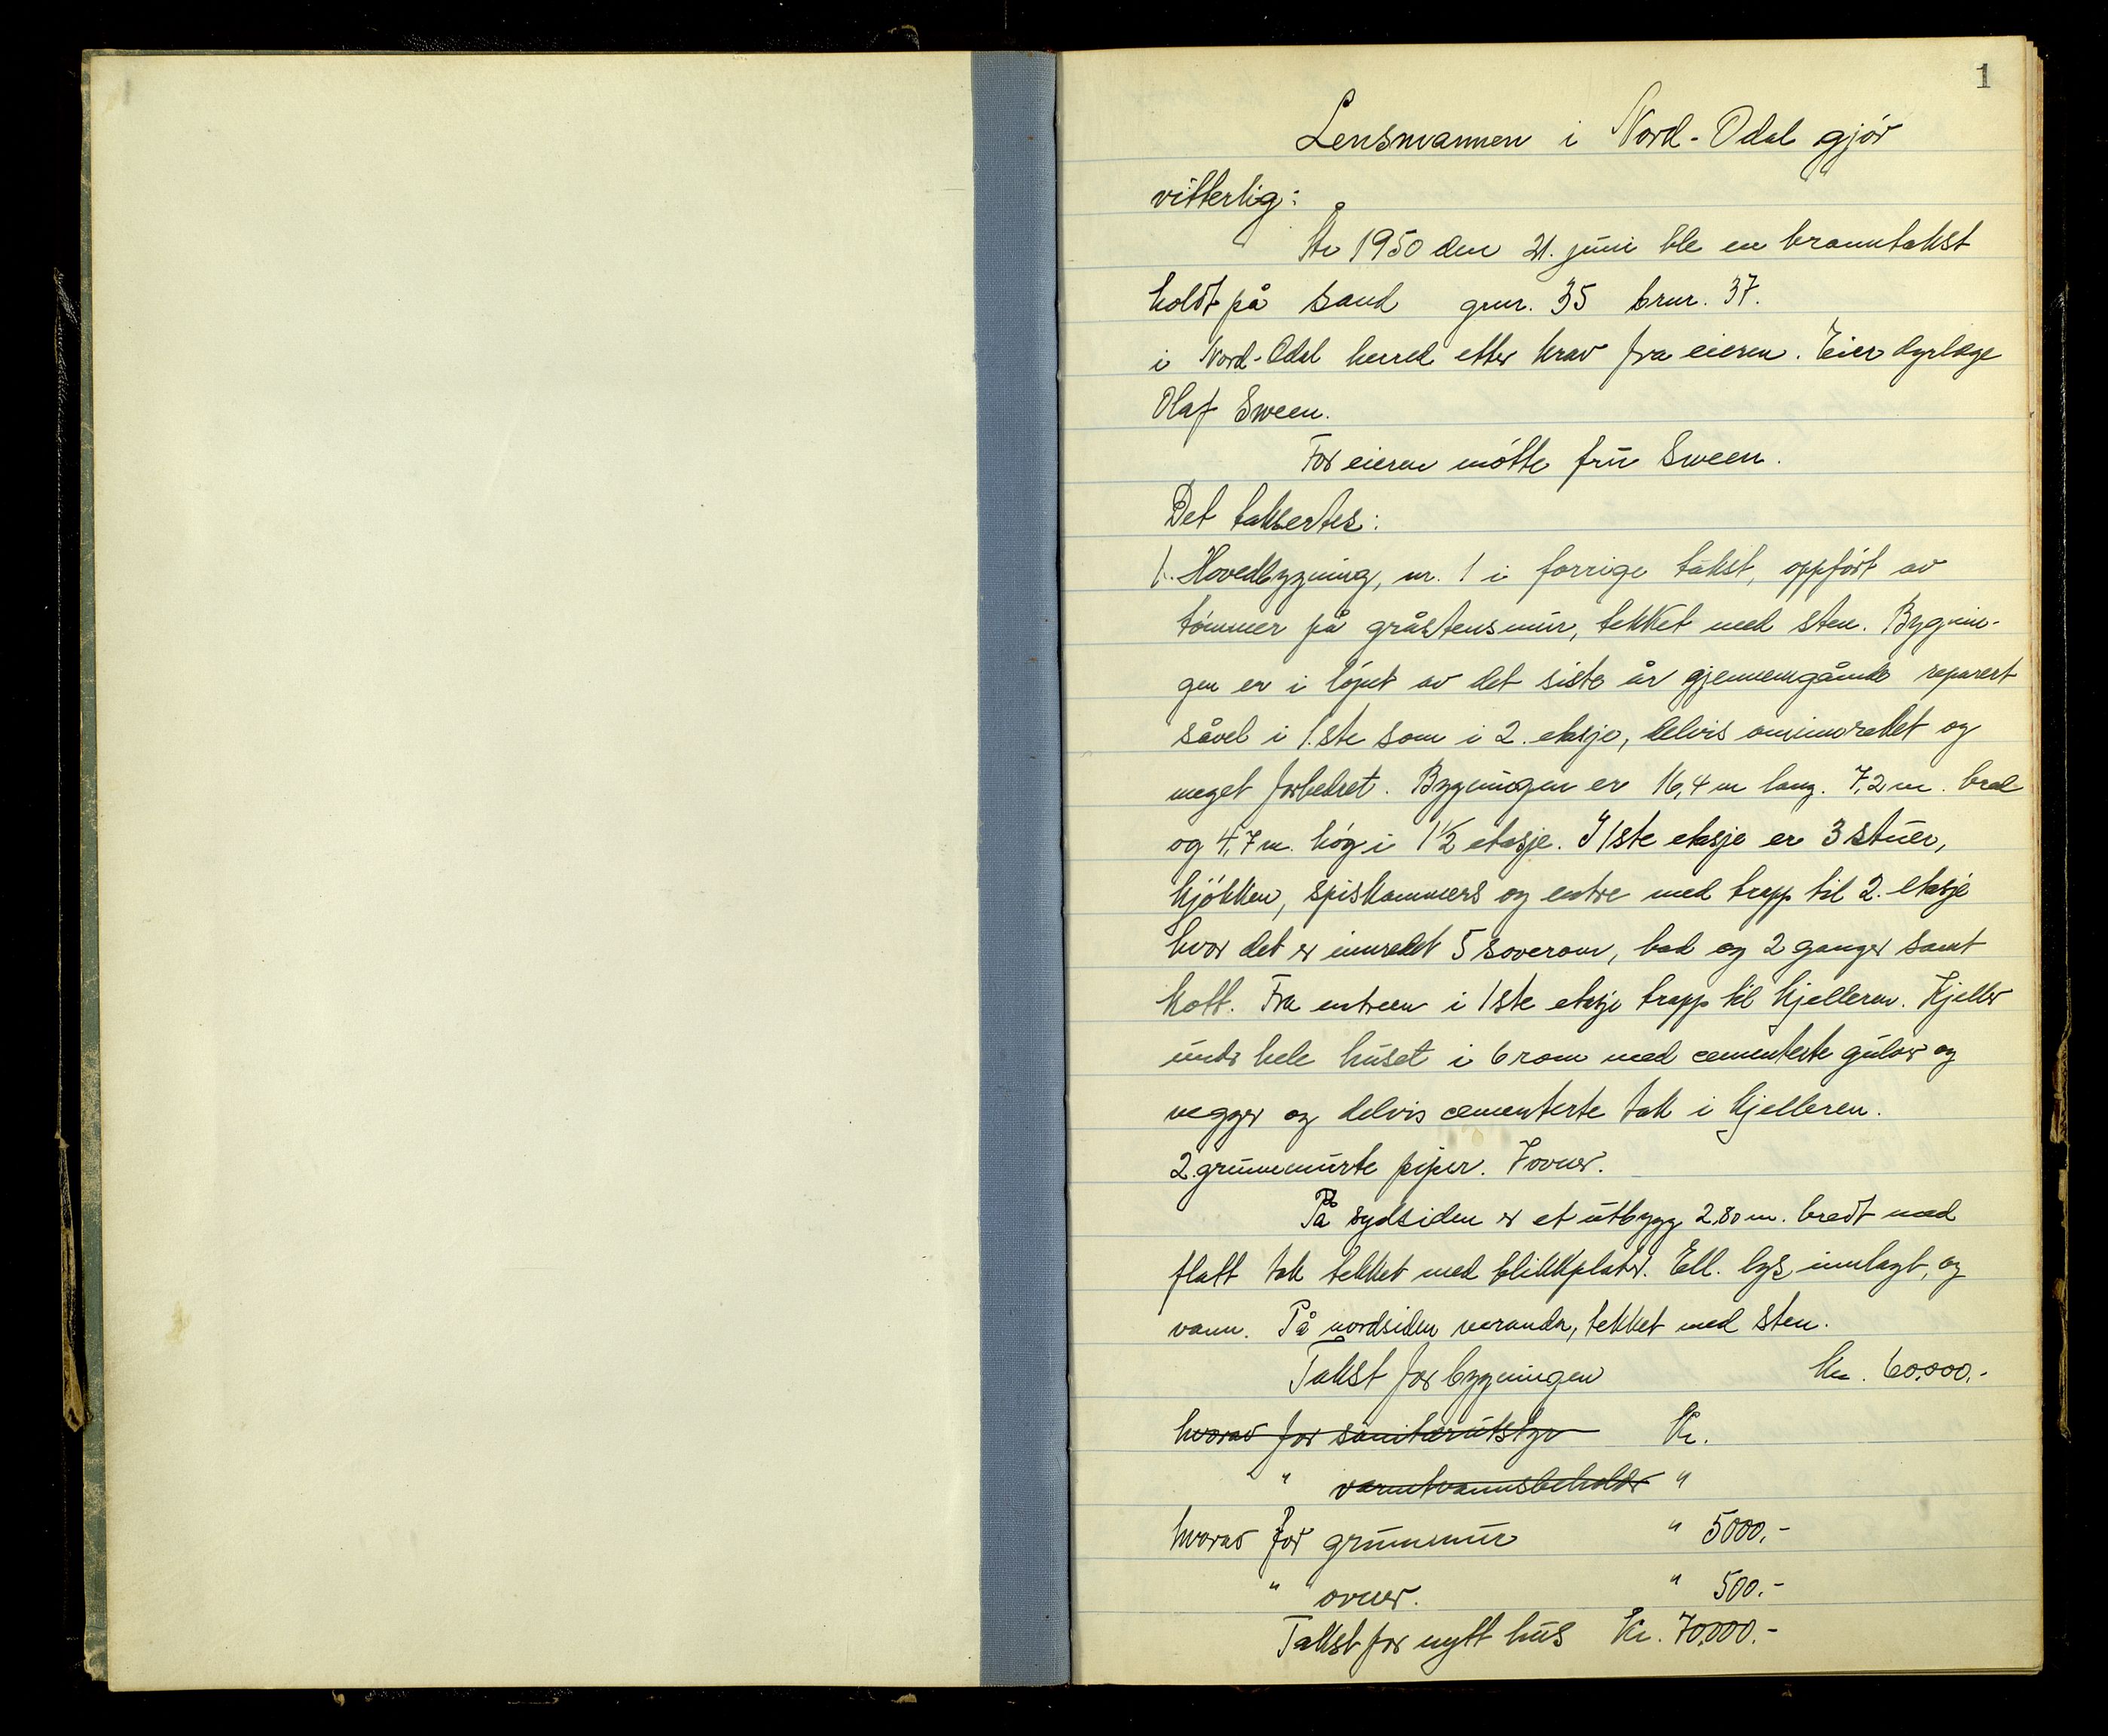 1
Lensmannen i Nord-Odal gjør
vitterlig:
År 1950 den 21. juni ble en branntakst
holdt på Sand gnr. 35 brnr. 37.
i Nord-Odal herred etter krav fra eieren. Eier dyrlæge
Olaf Sween.
For eieren møtte fru Sween.
Det taksertes:
1. Hovedbygning, nr. 1 i forrige takst, oppført av
tømmer på gråstensmur, tekket med sten. Bygnin-
gen er i løpet av det siste år gjennemgående reparert
såvel i 1.ste som i 2. etasje, delvis ominnredet og
meget forbedret. Bygningen er 16,4 m lang. 7,2 m. bred
og 4,7 m. høg i 1 1/2 etasje. I 1ste etasje er 3 stuer,
kjøkken, spiskammers og entre med trapp til 2. etasje
hvor det er innredet 5 soverom, bad og 2 ganger samt
kott. Fra entreen i 1ste etasje trapp til kjelleren. Kjeller
under hele huset i 6 rom med cementerte gulver og
vegger og delvis cementerte tak i kjelleren.
2. grunnmurte piper. 7 ovner.
På sydsiden er et utbygg 2.80 m. bredt med
flatt tak tekket med blikkplater. Ell. lys innlagt, og
vann. På nordsiden veranda, tekket med sten.
Takst for bygningen kr. 60.000.-
hvorav for sanitærutstyr Kr.
" varmtvannsbeholder "
hvorav for grunnmur " 5000.-
" " ovner. " 500.-
Takst for nytt hus Kr. 70.000.-